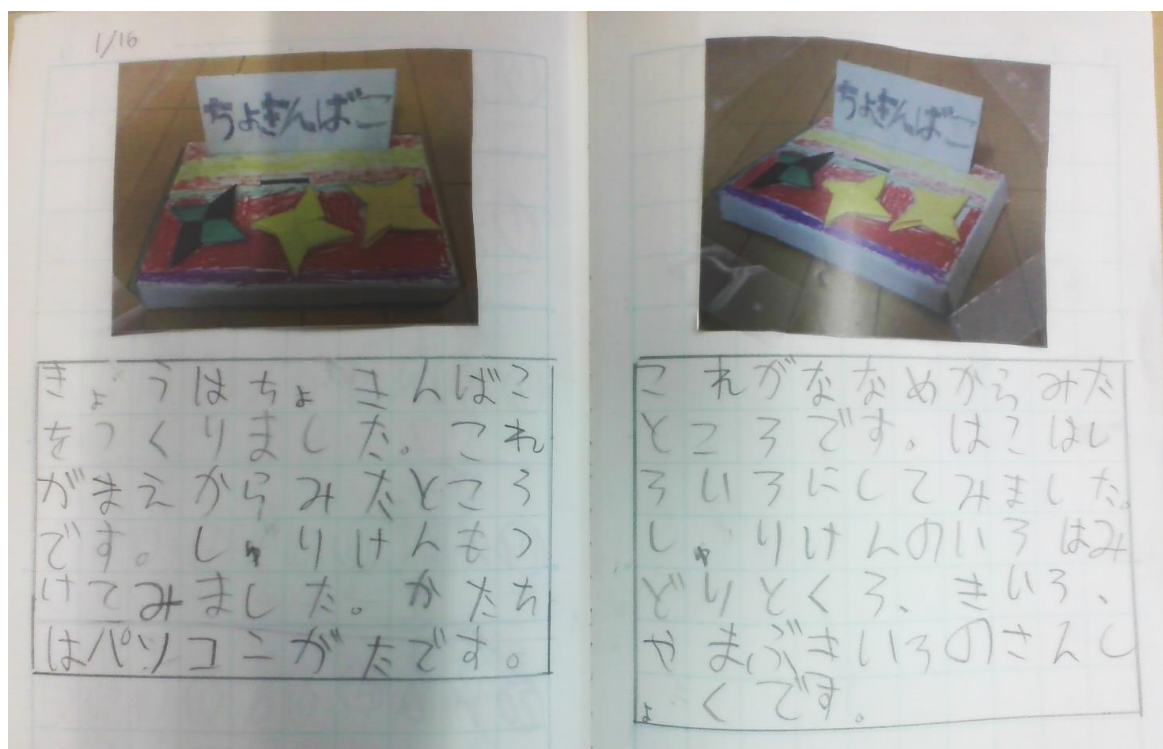 1/16
ちょきんばこ
きょうはちょきんばこ
をつくりました。これ
がまえからみたところ
です。しゅりけんもつ
けてみました。かたち
はパソコンがたです。
ちょきんばこ
これがななめからみた
ところです。はこはし
ろいろにしてみました。
しゅりけんのいろはみ
どりとくろ、きいろ、
やまぶきいろのさんし
ょくです。